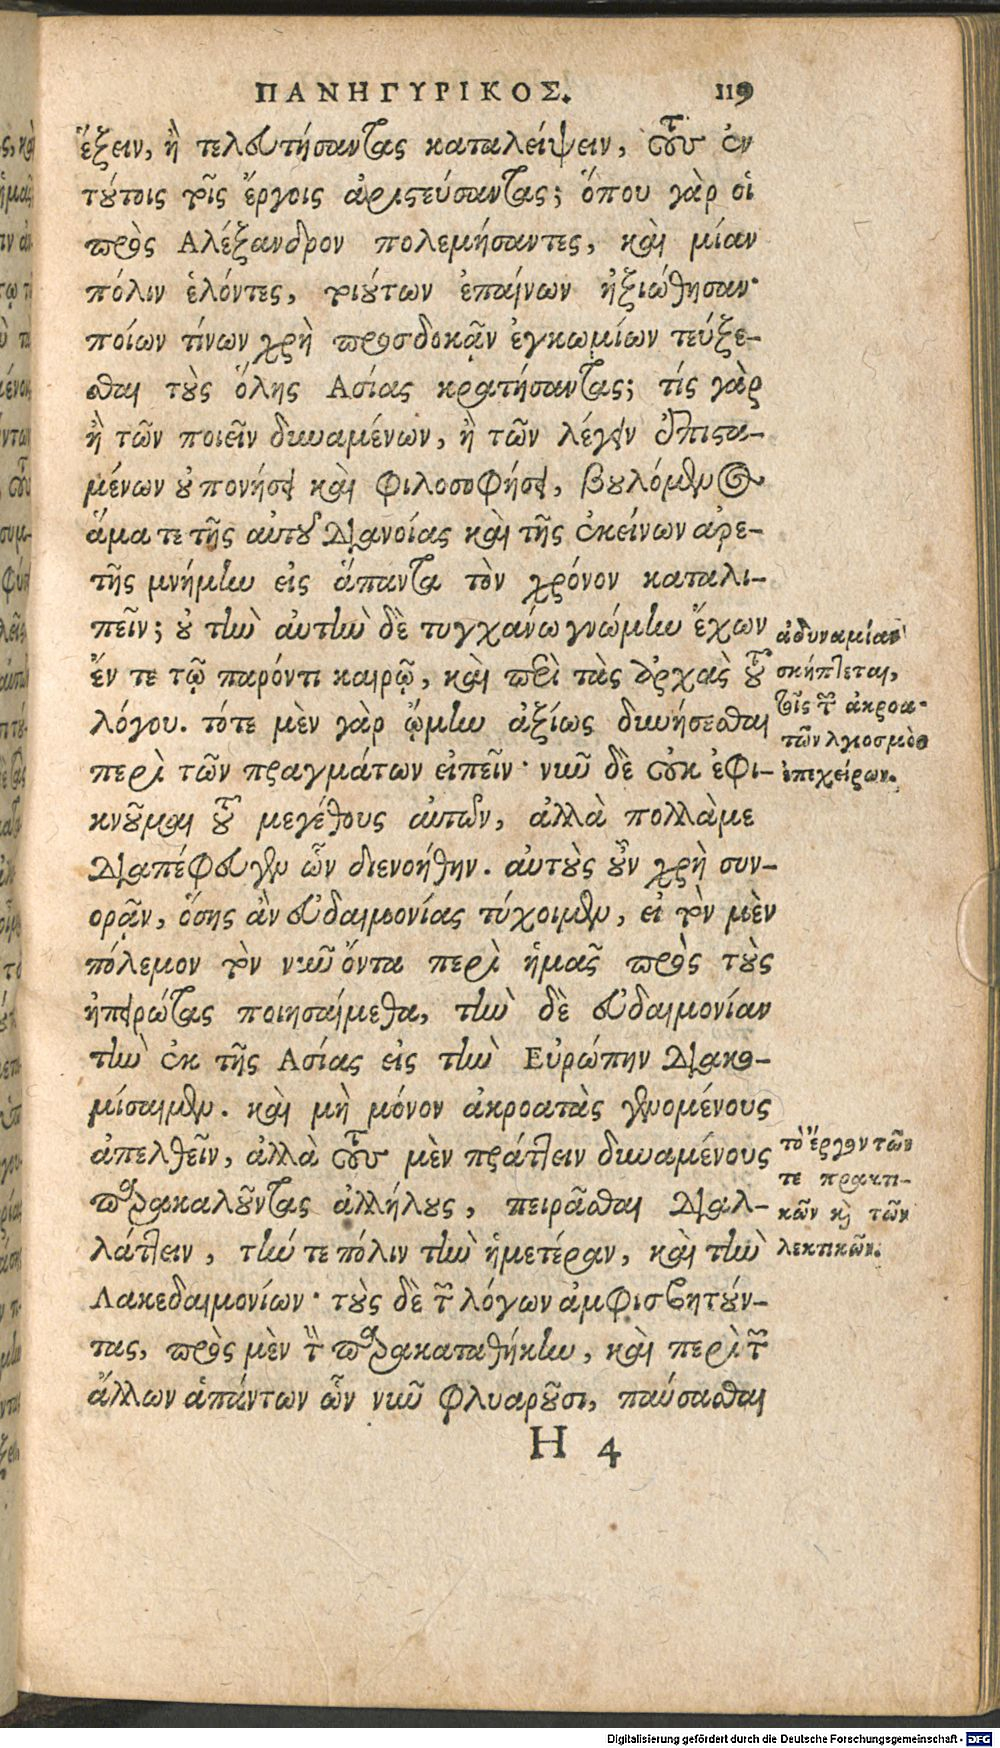 ΠΑΝΗΓΥΡΙΚΟΣ. 119
ἕξειν, ἢ τελευτήσαντας καταλείψειν, τοὺς ἐν
τούτοις τοῖς ἔργοις ἀριστεύσαντας; ὅπου γὰρ οἱ
πρὸς Αλέξανδρον πολεμήσαντες, καὶ μίαν
πόλιν ἑλόντες, τοιούτων ἐπαίνων ἠξιώθησαν·
ποίων τίνων χρὴ προσδοκᾷν ἐγκωμίων τεύξε-
σθαι τοὺς ὅλης Ασίας κρατήσαντας; τίς γὰρ
ἢ τῶν ποιεῖν δυναμένων, ἢ τῶν λέγειν ἐπιστα-
μένων οὐ πονήσει καὶ φιλοσοφήσει, βουλόμενος
ἅμα τε τῆς αὑτοῦ διανοίας καὶ τῆς ἐκείνων ἀρε-
τῆς μνήμην εἰς ἅπαντα τὸν χρόνον καταλι-
πεῖν; οὐ τὴν αὐτὴν δὲ τυγχάνω γνώμην ἔχων
ἔν τε τῷ παρόντι καιρῷ, καὶ περὶ τὰς ἀρχὰς τοῦ
λόγου. τότε μὲν γὰρ ᾤμην ἀξίως δυνήσεσθαι
περὶ τῶν πραγμάτων εἰπεῖν· νῦν δὲ οὐκ ἐφι-
κνοῦμαι τοῦ μεγέθους αὐτῶν, ἀλλὰ πολλὰ με
διαπέφευγεν ὧν διενοήθην. αὐτοὺς οὖν χρὴ συν-
ορᾷν, ὅσης ἂν εὐδαιμονίας τύχοιμεν, εἰ τὸν μὲν
πόλεμον τὸν νῦν ὄντα περὶ ἡμᾶς πρὸς τοὺς
ἠπειρώτας ποιησαίμεθα, τὴν δὲ εὐδαιμονίαν
τὴν ἐκ τῆς Ασίας εἰς τὴν Εὐρώπην διακο-
μίσαιμεν. καὶ μὴ μόνον ἀκροατὰς γενομένους
ἀπελθεῖν, ἀλλὰ τοὺς μὲν πράττειν δυναμένους
παρακαλοῦντας ἀλλήλους, πειρᾶσθαι διαλ-
λάττειν, τήν τε πόλιν τὴν ἡμετέραν, καὶ τὴν
Λακεδαιμονίων· τοὺς δὲ τῶν λόγων ἀμφισβητοῦν-
τας, πρὸς μὲν τὴν παρακαταθήκην, καὶ περὶ τῶν
ἄλλων ἁπάντων ὧν νῦν φλυαροῦσι, παύσασθαι
Η 4
ἀδυναμίαν
σκήπτεται,
τοῖς τῶν ἀκροα-
τῶν λογισμὸς
ἐπιχείρων.
τὸ ἔργον τῶν
τε πρακτι-
κῶν κὶ τῶν
λεκτικῶν.
Digitalisierung gefördert durch die Deutsche Forschungsgemeinschaft - DFG